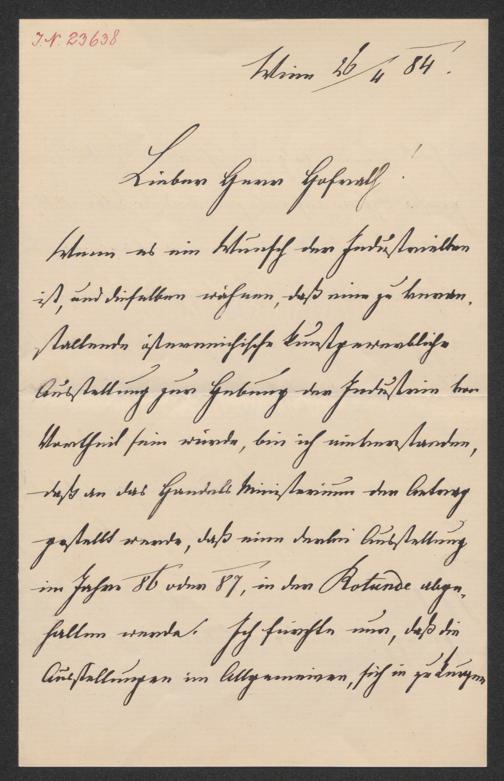 J.N. 23638
Wien 26/4 84.
Lieber Herr Hofrath!
Wenn es ein Wunsch der Industriellen
ist, und dieselben wähnen, daß eine zu veran-
staltende österreichische kunstgewerbliche
Ausstellung zur Hebung der Industrie von
Vortheil sein würde, bin ich einverstanden,
daß an das Handels Ministerium der Antrag
gestellt werde, daß eine derlei Ausstellung
im Jahre 86 oder 87, in der Rotunde abge-
halten werde. Ich fürchte nur, daß die
Ausstellungen im Allgemeinen, sich in zu kurzen